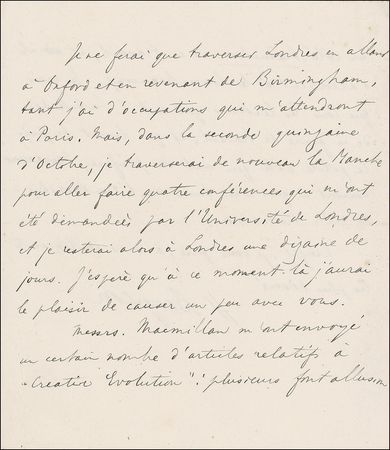 Je ne ferai que traverser Londres en allant
à Oxford et en revenant de Birmingham,
tant j'ai d'occupations qui m'attendront
à Paris. Mais, dans la seconde quinzaine
d'Octobre, je traverserai de nouveau la Manche
pour aller faire quatre conférences qui m'ont
été demandées par l'Université de Londres,
et je resterai alors à Londres une dizaine de
jours. J'espère qu'à ce moment-là j'aurai
le plaisir de causer un peu avec vous.
Messrs. Macmillan m'ont envoyé
un certain nombre d'articles relatifs à
"Creative Evolution": plusieurs font allusion